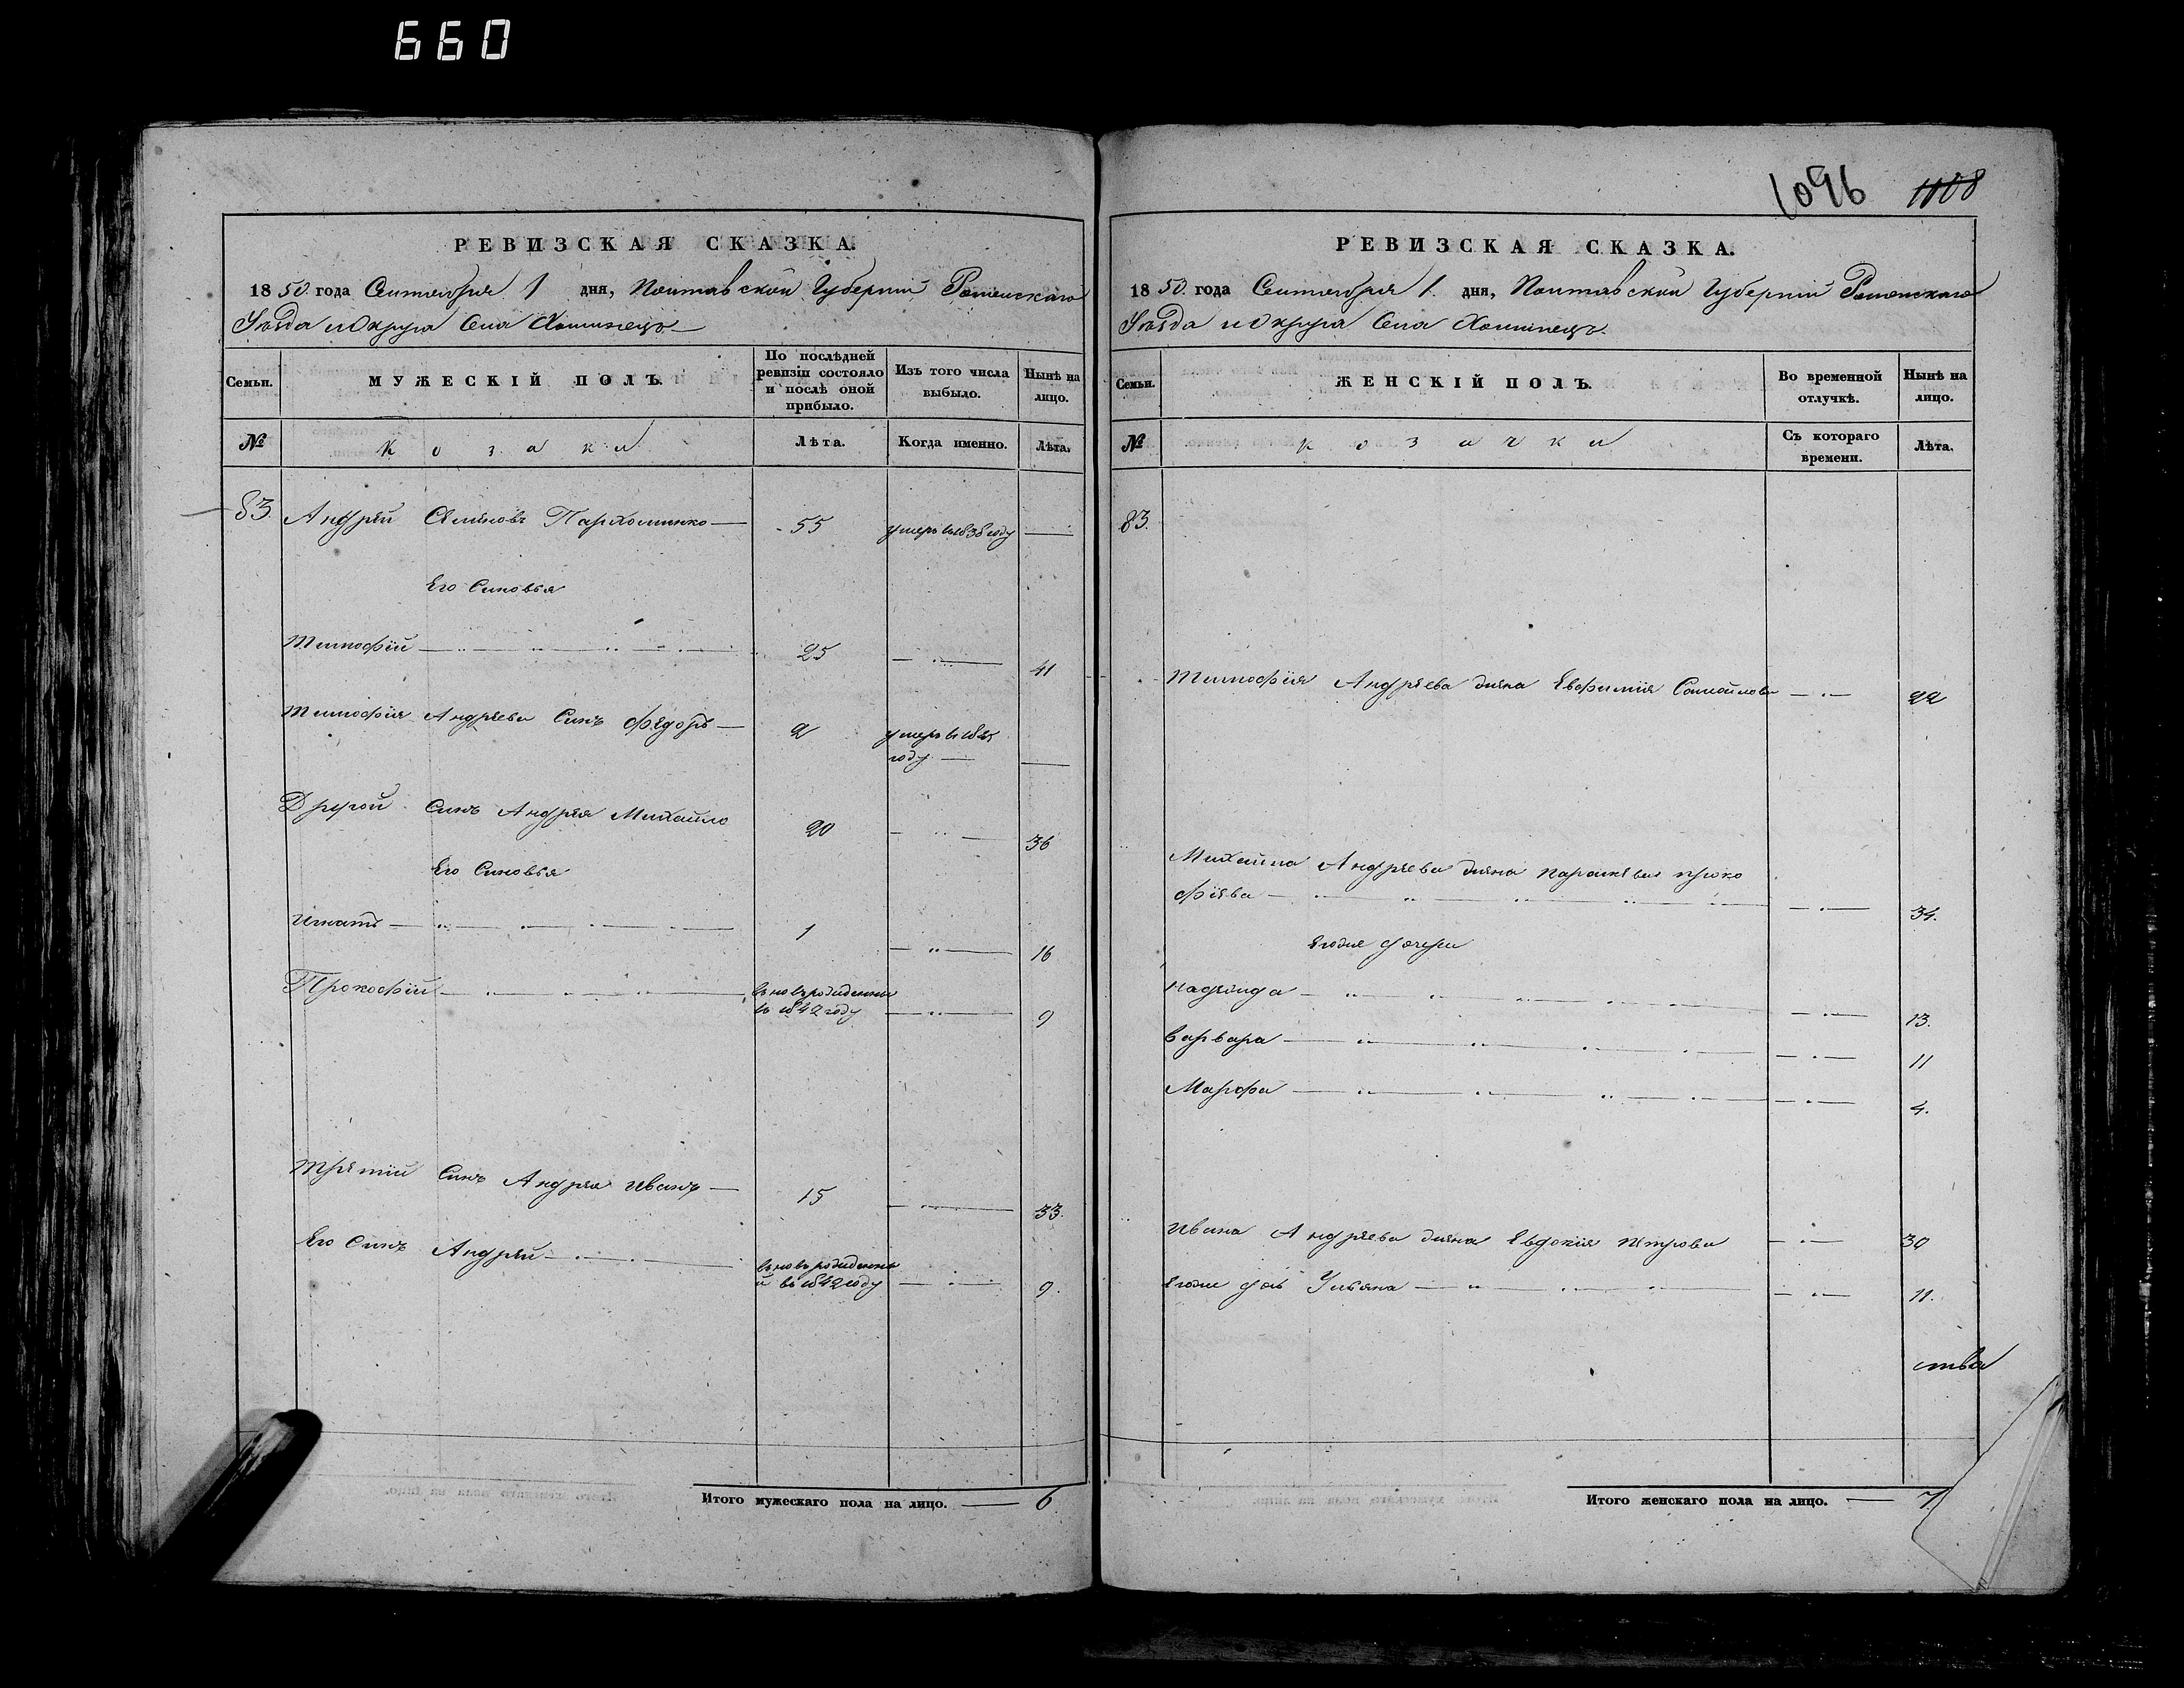 660
РЕВИЗСКАЯ СКАЗКА.
1850. года Сентября 1 дня, Полтавской Губерніи Роменскаго
Уѣзда и Округа Села Хоминецъ
Семьи.
МУЖЕСКІЙ ПОЛЪ.
По послѣдней ревизіи состояло и послѣ оной прибыло.
Изъ того числа выбыло.
Нынѣ на лицо.
№
Козаки
Лѣта.
Когда именно.
Лѣта.
83. Андрей Семеновъ Пархоменко — 55 умеръ въ 1838 году —
Его Синовья
Тимофій — 25 — 41
Тимофія Андреева Синъ Федоръ — 2
году —
Другой Синъ Андрея Михайло 20 — 36
Его Синовья
Игнатъ — 1 — 16
Прокофій — вновърожденни
въ 1842 году — 9
Третій Синъ Андрея Иванъ — 15 — 33.
Его Синъ Андрей — вновърожденны
й въ 1842 году — 9.
Итого мужескаго пола на лицо. — 6
1096 1108
РЕВИЗСКАЯ СКАЗКА.
1850. года Сентября 1. дня, Полтавской Губерніи Роменскаго
Уѣзда и Округа Села Хоминецъ.
Семьи.
ЖЕНСКІЙ ПОЛЪ.
Во временной отлучкѣ.
Нынѣ на лицо.
№
Козачки
Съ котораго времени.
Лѣта.
83.
Тимофія Андреева жена Евфимія Самойлова — 22
Михайла Андреева жена Параскевия Проко
фіева — 34.
Егоже дочери
Надежда — 13.
Варвара — 11
Марфа — 4.
Ивана Андреева жена Евдокія Петрова — 30
Егоже дочь Ульяна — 11.
ства
Итого женскаго пола на лицо. — 7.